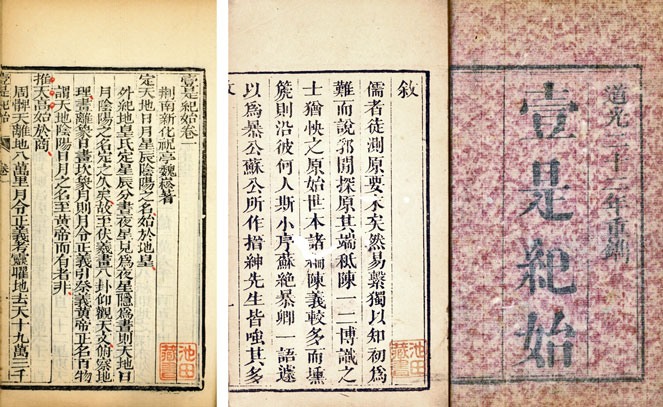 道光二十二年重鐫
壹是紀始
敘
儒者徒測原要末矣然易繫獨以知初為
難而說郛閒探原其端秪陳一二博識之
士猶怏之原始世本諸編陳義較多而壎
篪則沿彼何人斯小序蘇絕暴卿一語遽
以為暴公蘇公所作搢紳先生皆嗤其多
池田藏書
壹是紀始卷一
荆南新化祝亭魏崧著
定天地日月星辰陰陽之名始於地皇
外紀地皇氏定星辰分晝夜星見為夜星隱為晝則天地日
月陰陽之名定之久矣故至伏羲畫八卦仰觀天文俯察地
理畫離象日畫坎象月則月令正義引祭義黃帝正名百物
謂天地陰陽日月之名至黃帝而有者非
推天高始於商
周髀天離地八萬里月令正義考靈曜地去天十九萬二千
壹是紀始 卷一
池田藏書